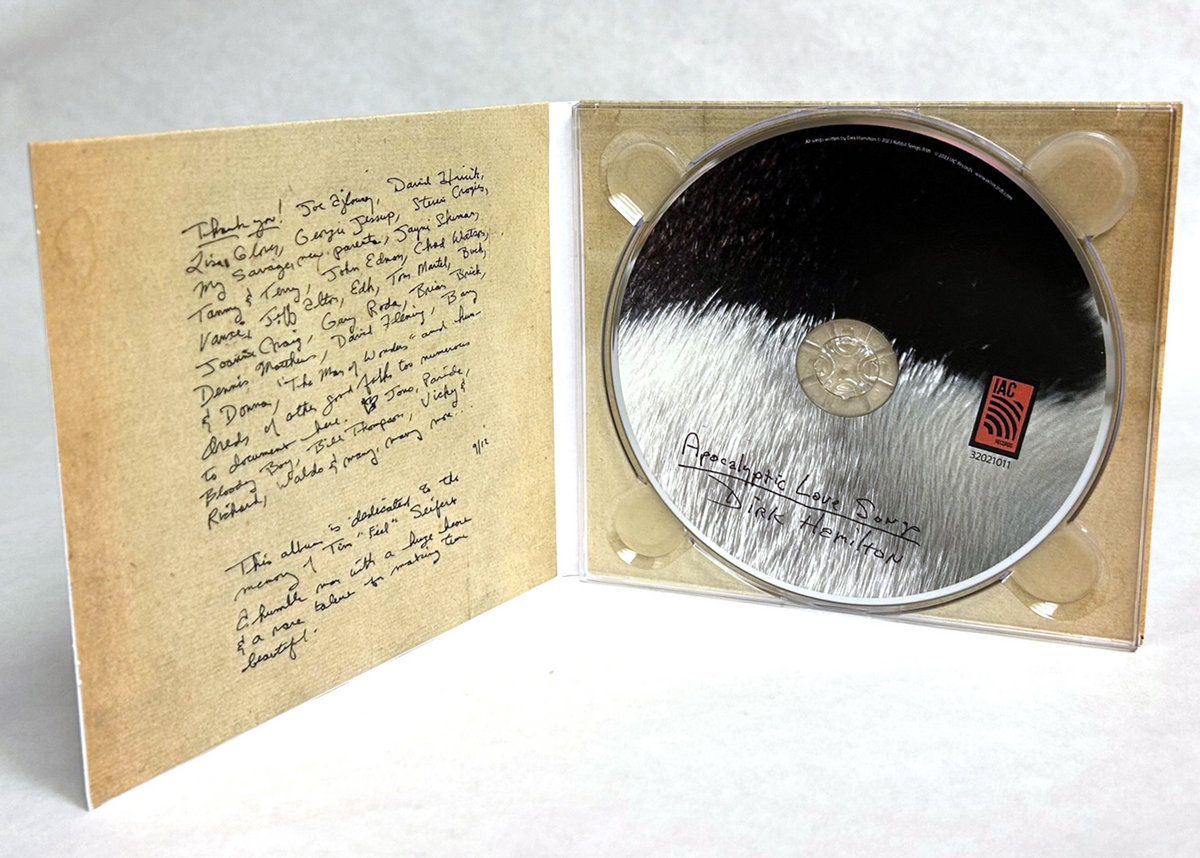 Thank you! Joe David
Lisa Glory, George Jessup, Steve
My Savage, my parents, Jayni Shuman,
Tammy & Terry, John Edmon, Chad Watson,
Vance, Jeff Elton, Edh, Tom Martel, Buck,
Joanne Craig, Gary Roda, Brian Brick,
Dennis Matthews, David Fleming, Barry
& Donna, "The Men of Wonders" and hun-
dreds of other good folks too numerous
to document here. Jono, Paride,
Bloody Boy, Bill Thompson, Vicky &
Richard, Waldo & many, many more...
9/12
This album is dedicated to the
memory of Tim "Feel" Seifert
a humble man with a huge heart
& a rare talent for making time
beautiful.
All songs written by Dirk Hamilton © 2023 Rabbit Songs, BMI ℗ 2023 IAC Records
IAC
RECORDS
32021011
Apocalyptic Love Songs
Dirk Hamilton